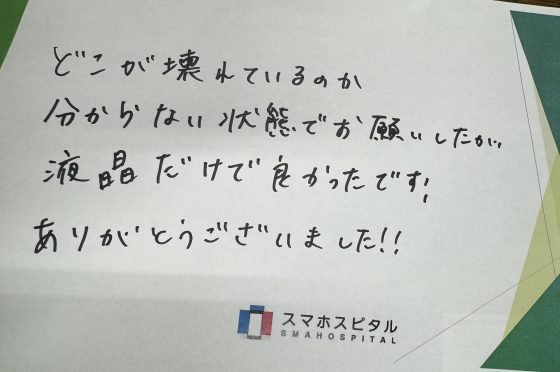 どこが壊れているのか
分からない状態でお願いしたが
液晶だけで良かったです!
ありがとうございました!!
スマホスピタル
SMAHOSPITAL